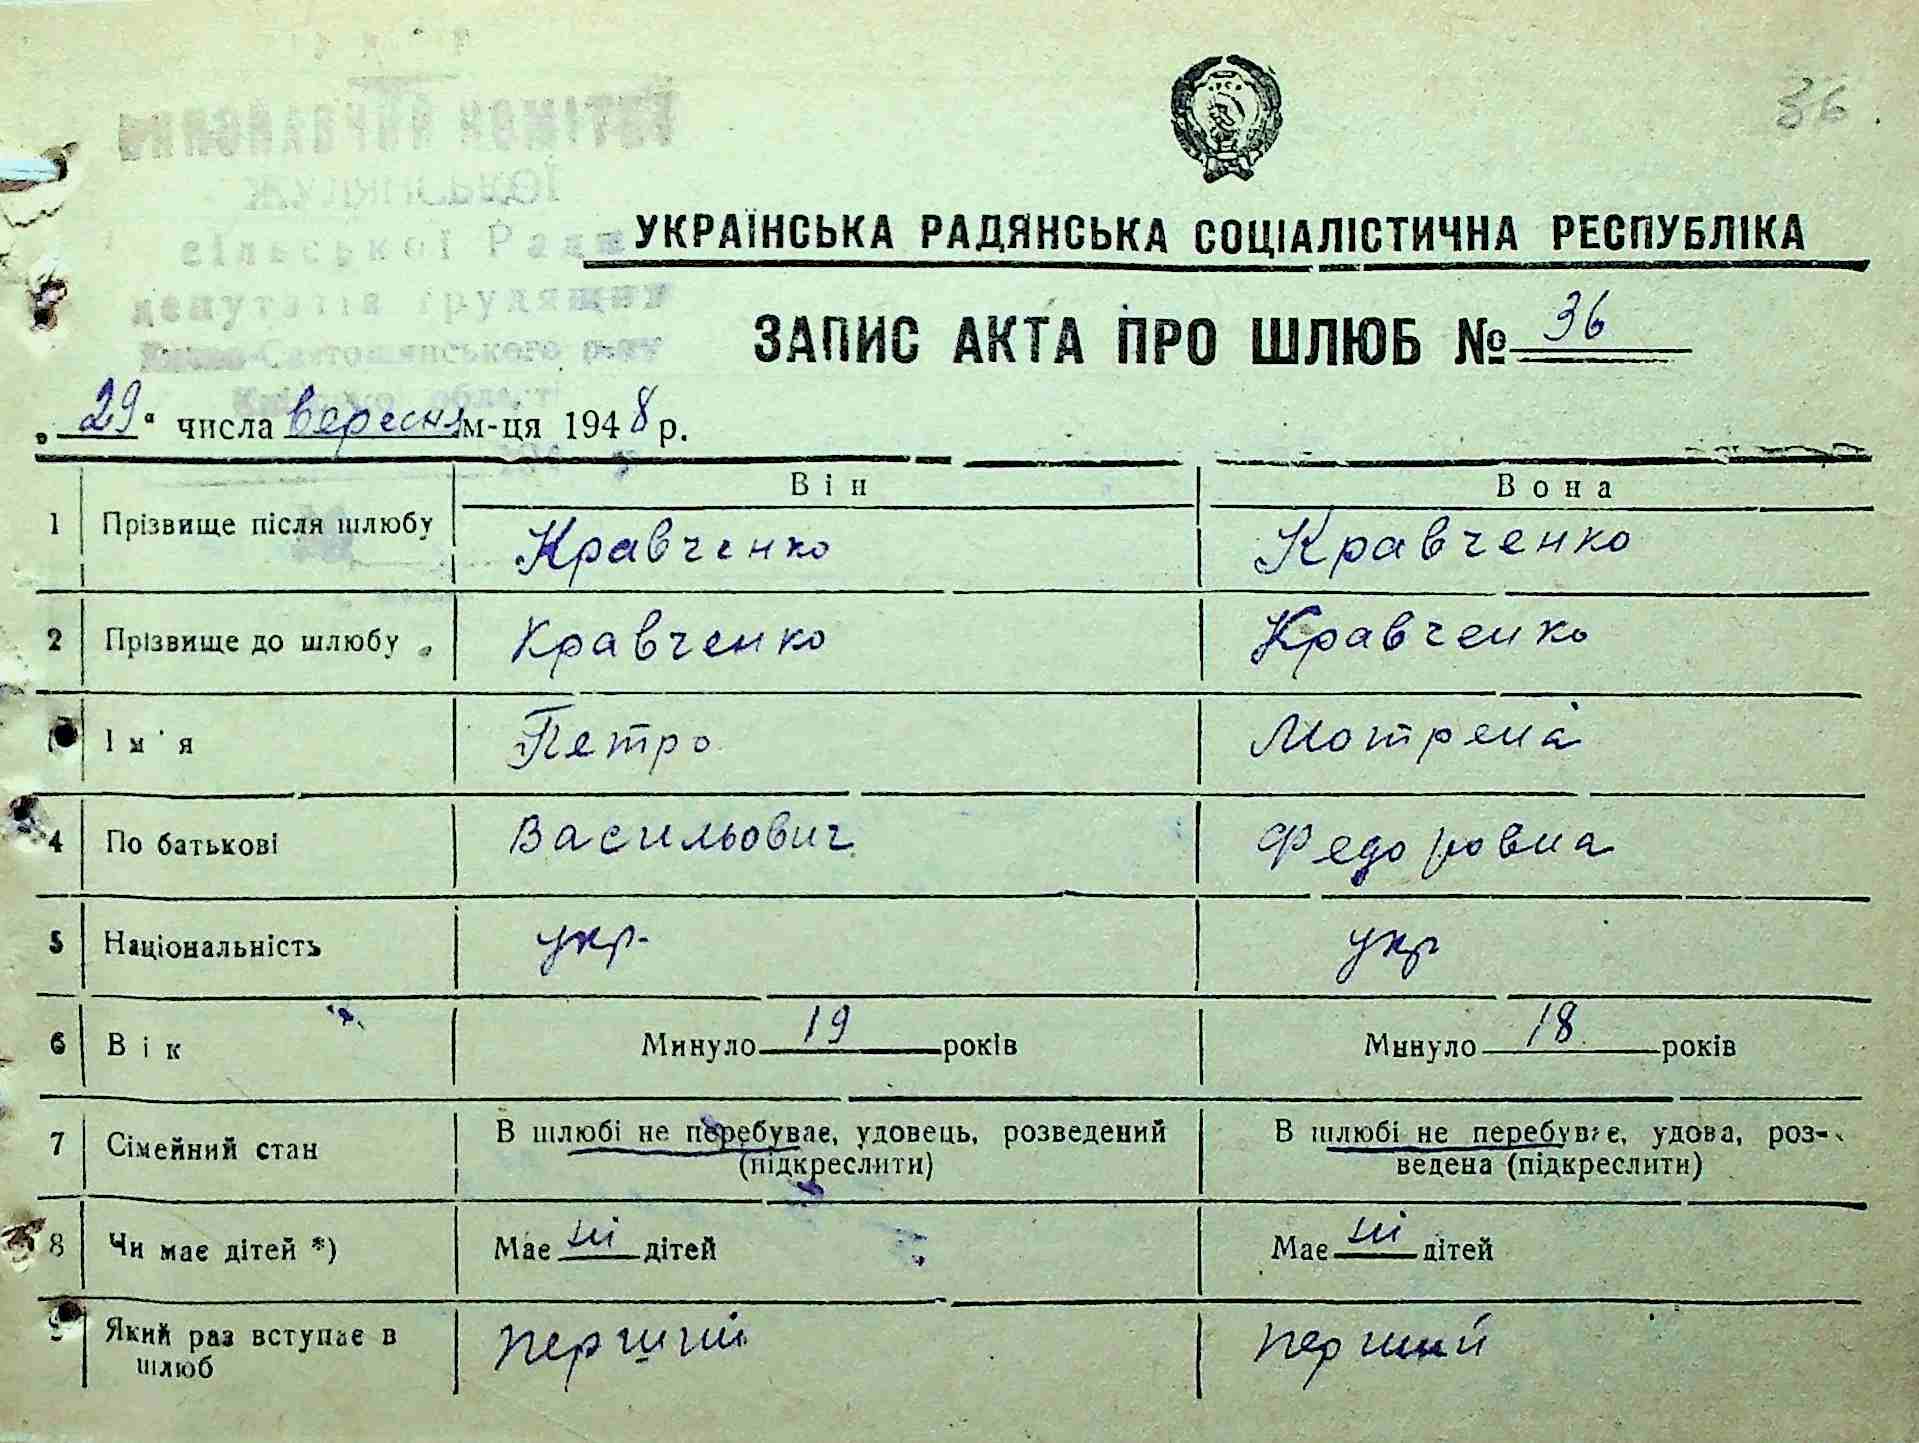 36
ВИКОНАВЧИЙ КОМІТЕТ
сільської Ради
депутатів трудящих
Києво-Святошинського р-ну
УКРАЇНСЬКА РАДЯНСЬКА СОЦІАЛІСТИЧНА РЕСПУБЛІКА
ЗАПИС АКТА ПРО ШЛЮБ № 36
„29“ числа вересня м-ця 1948 р.
Він Вона
1 Прізвище після шлюбу Кравченко Кравченко
2 Прізвище до шлюбу Кравченко Кравченко
Ім'я Петро Мотрена
4 По батькові Васильович Федоровна
5 Національність укр. укр
6 Вік Минуло 19 років Минуло 18 років
7 Сімейний стан В шлюбі не перебуває, удовець, розведений (підкреслити) В шлюбі не перебуває, удова, роз-
ведена (підкреслити)
8 Чи має дітей *) Має ні дітей Має ні дітей
9 Який раз вступає в шлюб перший перший